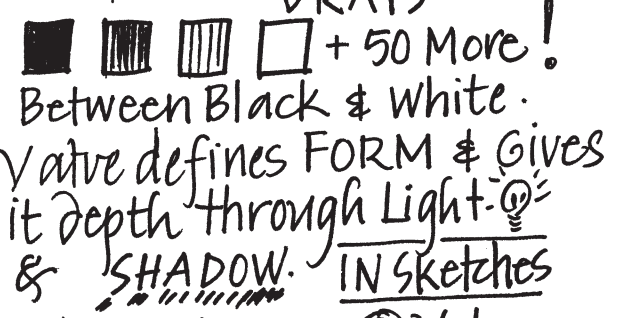 GRAYS
+ 50 More!
Between Black & White.
Value defines FORM & Gives
it depth through Light
& SHADOW. IN Sketches